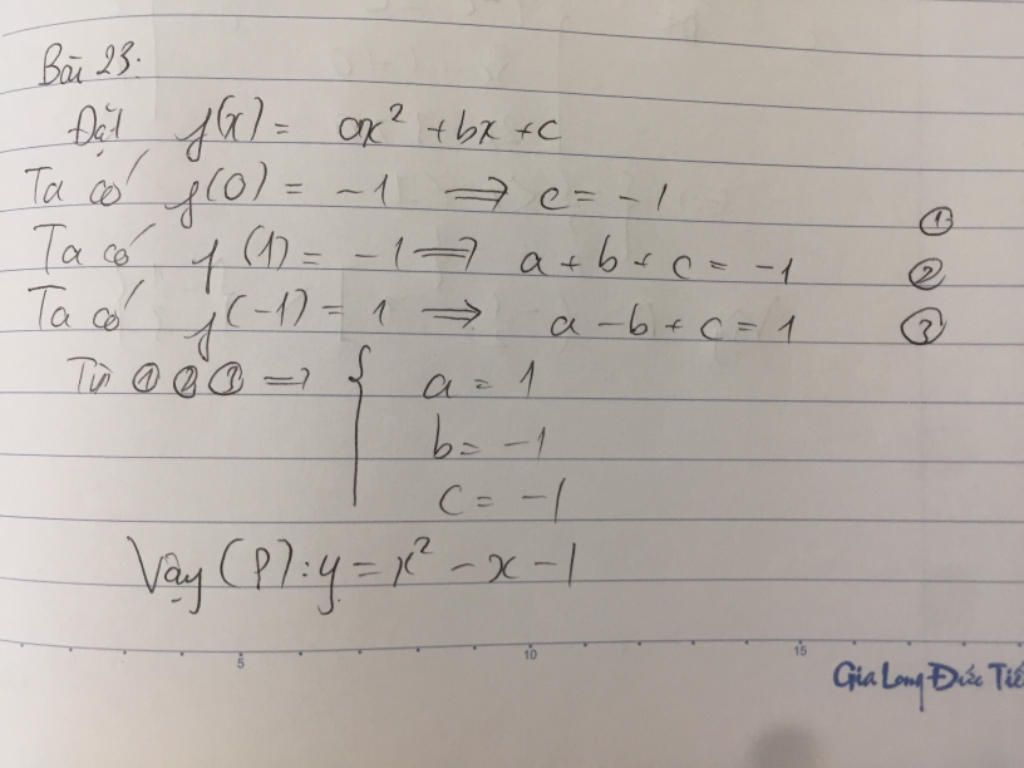 Bài 23:
Đặt f(x) = ax² + bx + c
Ta có f(0) = -1 ⟹ c = -1 ①
Ta có f(1) = -1 ⟹ a + b + c = -1 ②
Ta có f(-1) = 1 ⟹ a - b + c = 1 ③
Từ ① ② ③ ⟹ { a = 1
b = -1
c = -1
Vậy (P): y = x² - x - 1
5 10 15
Gia Long Đức Tiế